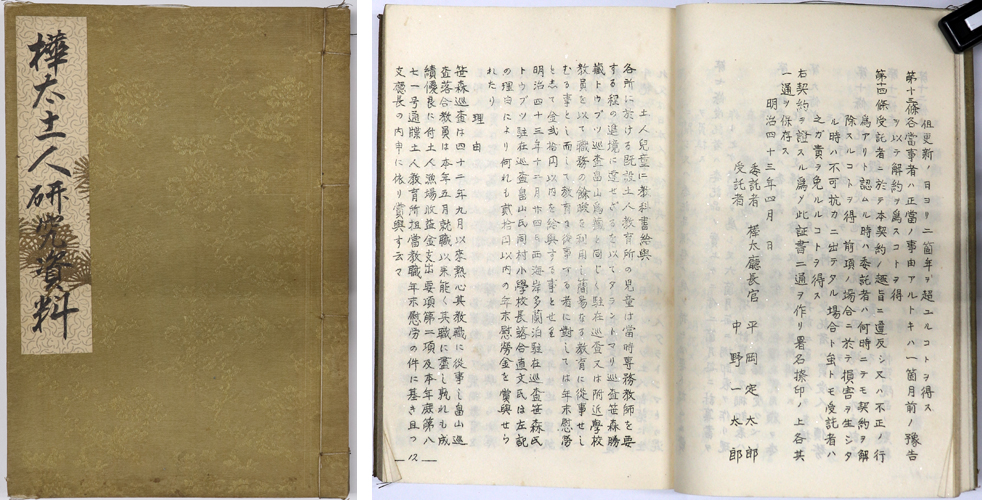 樺太土人研究資料
但更新ノ日ヨリ二箇年ヲ超ユルコトヲ得ス
第十三條各當事者ハ正當ノ事由アルトキハ一箇月前ノ豫告
ヲ以テ解約ヲ爲スコトヲ得
第十四條受託者ニ於テ本契約ノ趣旨ニ違反シ又ハ不正ノ行
爲アリト認ムル時ハ委託者ハ何時ニテモ契約ヲ解
除スルコトヲ得前項ノ場合ニ於テ損害ヲ生シタ
ル時ハ不可抗力ニ出テタル場合ト虽トモ受託者ハ
之ガ責ヲ免ルルコトヲ得ス
右契約ヲ證スル爲メ此証書二通ヲ作リ署名捺印ノ上各其
一通ヲ保存ス
明治四十三年四月 日
委託者 樺太廳長官 平岡定太郎
受託者 中野一太郎
土人兒童に教科書給與
各所に於ける既設土人教育所の兒童は當時專務教師を要
する程の進境に達せざるを以てタラントマリ巡査笹森勝
藏トウブツ巡査畠山爲藏と同じく駐在巡査又は附近學校
教員を以て職務の餘暇を利用し簡易なる教育に從事せし
むる事とし而して教育に從事する者に對しては年末慰勞
として金貳拾円以内を給與する事とせり
明治四十三年十二月廿四日西海岸多蘭泊駐在巡査笹森氏
トウブツ駐在巡査畠山氏同村小學校長落合直文氏は左記
の理由により何れも貳拾円以内の年末慰勞金を賞與せら
れたり
理由
笹森巡査は四十二年九月以来熱心其教職に從事し畠山巡
査落合教員は本年五月就職以来能く其職に盡し孰れも成
績優良に付土人漁場收益金支出要項第二項及本年庶第八
七一号通牒土人教育所担當教職年末慰勞の件に基き且つ
支廳長の内申に依り賞與す云々
12